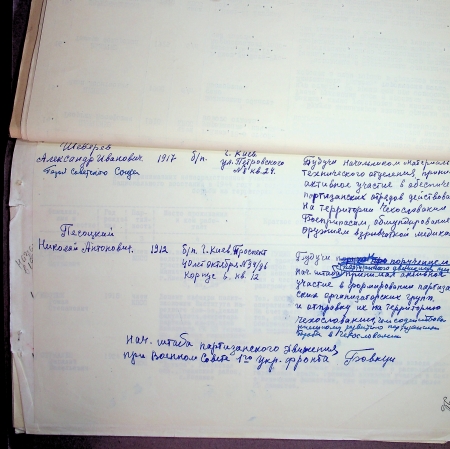 Шеверев
Александр Иванович. 1917 б/п. г. Киев
ул. Петровского
№ 8 кв. 24.
Герой Советского Союза
Будучи начальником материально
технического отделения, принимал
активное участие в обеспечении
партизанских отрядов действовавших
на территории Чехословакии
боеприпасом, обмундированием
оружием взрывчаткой медика
Песоцкий
Николай Антонович. 1912 б/п. г. Киев, Проспект
40 лет октября № 34/96
Корпус 6. кв. 12
Будучи поручению
нач. штаба партизанского движения принимал активное
участие в формировании партизан
ских организаторских групп
и отправку их на территорию
Чехословакии,
в Чехословакии
Нач. штаба партизанского движения
при Военном Совете 1го укр. фронта Бовкун